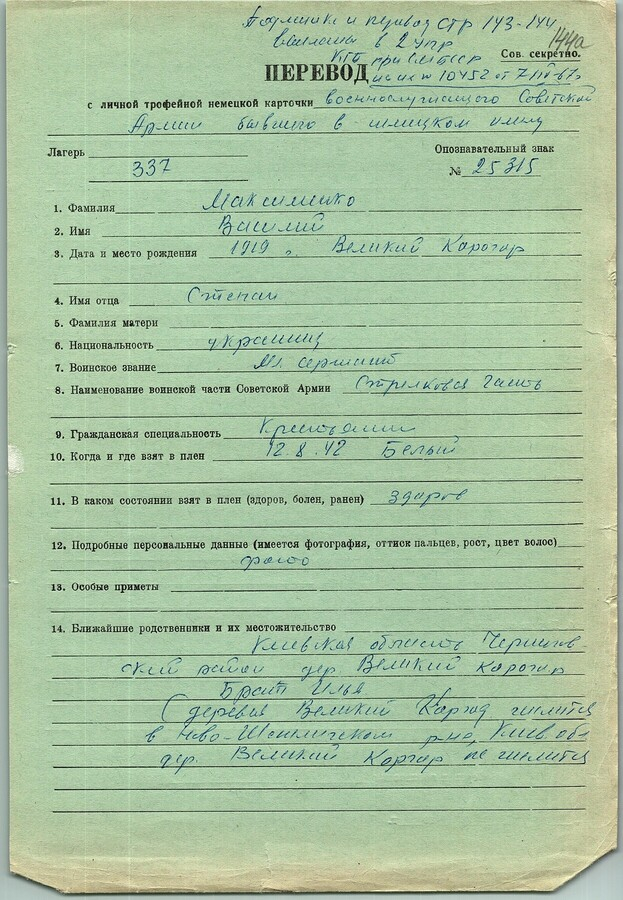 Подлинник и перевод стр 143-144
высланы в 2 упр
КГБ при СМ СССР
исх № 10452 от 7/IV-67г
144а
Сов. секретно.
ПЕРЕВОД
с личной трофейной немецкой карточки военнослужащего Советской
Армии бывшего в немецком плену
Лагерь 337
Опознавательный знак
№ 25315
1. Фамилия Максименко
2. Имя Василий
3. Дата и место рождения 1919 г. Великий Карогар
4. Имя отца Степан
5. Фамилия матери
6. Национальность украинец
7. Воинское звание Мл. сержант
8. Наименование воинской части Советской Армии Стрелковая часть
9. Гражданская специальность Крестьянин
10. Когда и где взят в плен 12.8.42 Белый
11. В каком состоянии взят в плен (здоров, болен, ранен) здоров
12. Подробные персональные данные (имеется фотография, оттиск пальцев, рост, цвет волос)
фото
13. Особые приметы
14. Ближайшие родственники и их местожительство
Киевская область Чернигов-
ский район дер Великий Карогар
Брат Илья
(деревня Великий Карогод числится
в Ново-Шепеличском р-не, Киев обл
дер. Великий Карогар не числится